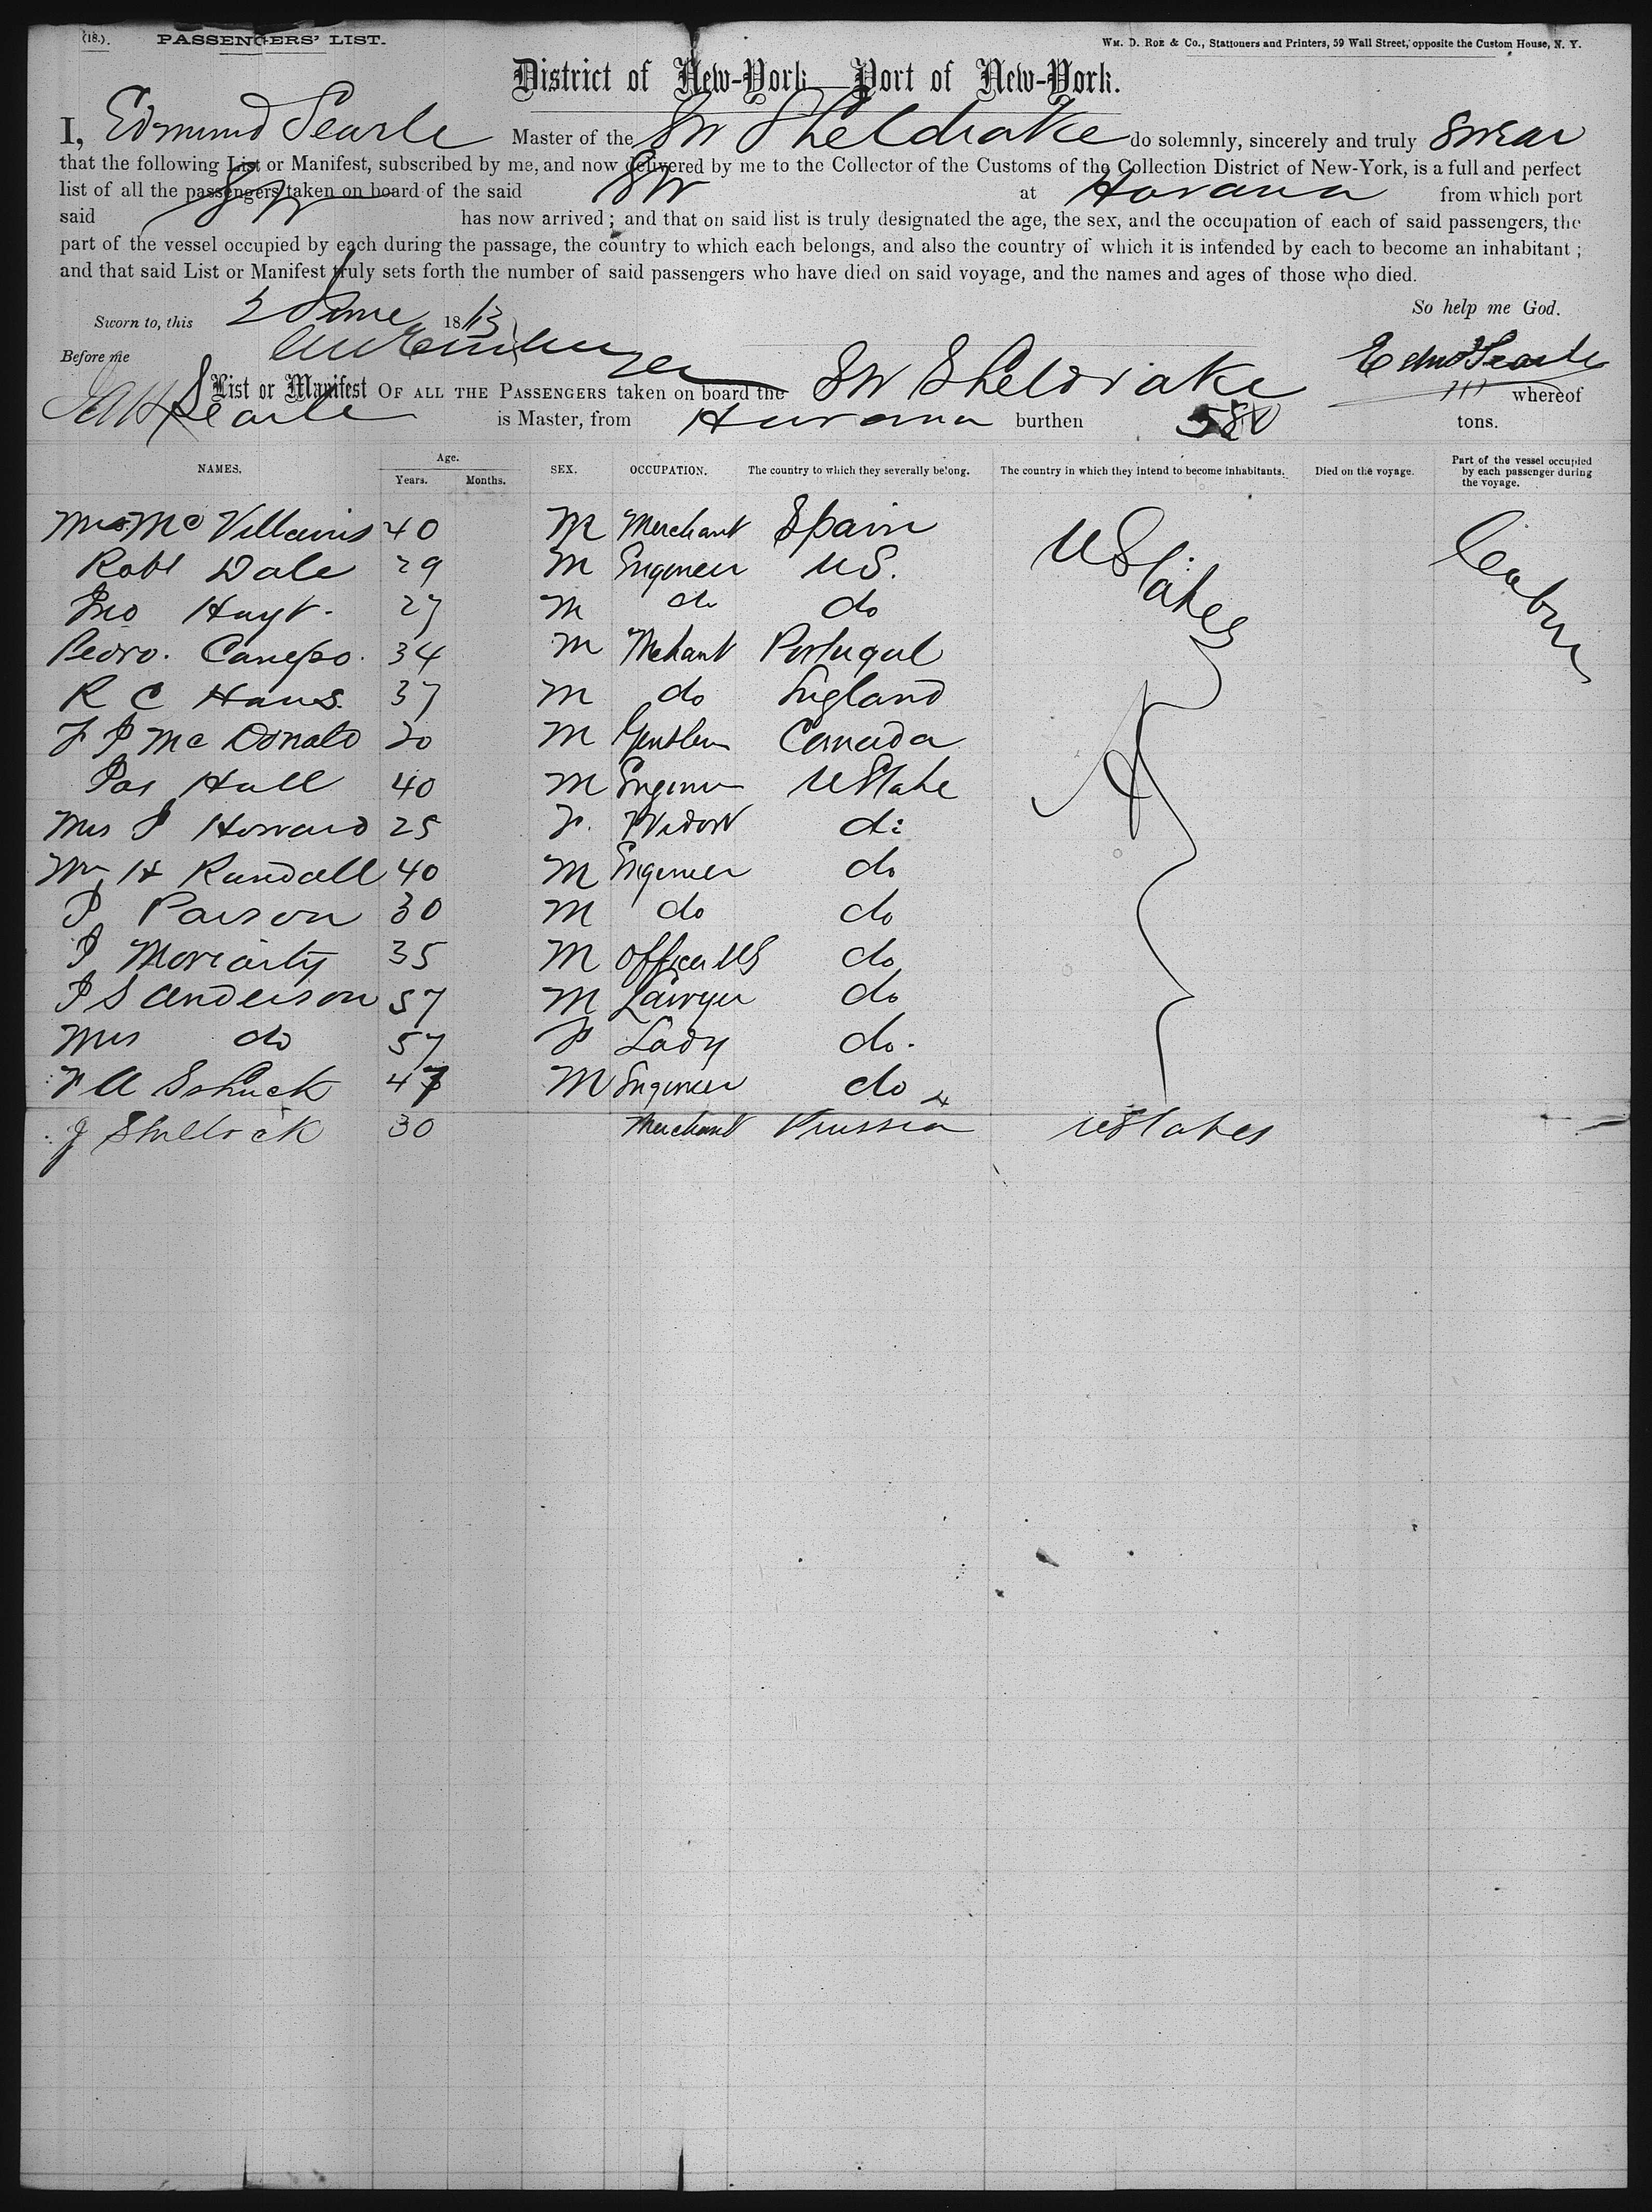 (18.) PASSENGERS' LIST. WM. D. ROE & CO., Stationers and Printers, 59 Wall Street, opposite the Custom House, N. Y.
District of New-York Port of New-York.
I, Edmund Searle Master of the SW Sheldrake do solemnly, sincerely and truly swear
that the following List or Manifest, subscribed by me, and now delivered by me to the Collector of the Customs of the Collection District of New-York, is a full and perfect
list of all the passengers taken on board of the said SW at Havana from which port
said SW has now arrived; and that on said list is truly designated the age, the sex, and the occupation of each of said passengers, the
part of the vessel occupied by each during the passage, the country to which each belongs, and also the country of which it is intended by each to become an inhabitant;
and that said List or Manifest truly sets forth the number of said passengers who have died on said voyage, and the names and ages of those who died.
So help me God.
Sworn to, this 2 June 18
Before me Edm Searle
List or Manifest OF ALL THE PASSENGERS taken on board the SW Sheldrake whereof
Searle is Master, from Havana burthen 580 tons.
NAMES. Age. Years. Months. SEX. OCCUPATION. The country to which they severally belong. The country in which they intend to become inhabitants. Died on the voyage. Part of the vessel occupied by each passenger during the voyage.
40 M Merchant Spain UStates Cabin
Robt Dale 29 M Engineer US.
Jno Hayt. 27 M do do
Pedro. Canepo. 34 M Mehant Portugal
R C Haws. 37 M do England
J J McDonald 30 M Gentlem Canada
Jas Hall 40 M Engineer UState
Mrs J Howard 25 F. Widow do
Wm H Randall 40 M Engineer do
J Parson 30 M do do
J Moriarty 35 M Officer US do
J S Anderson 57 M Lawyer do
Mrs do 57 F Lady do.
F A Schuck 47 M Engineer do
J 30 Merchant Prussia UStates